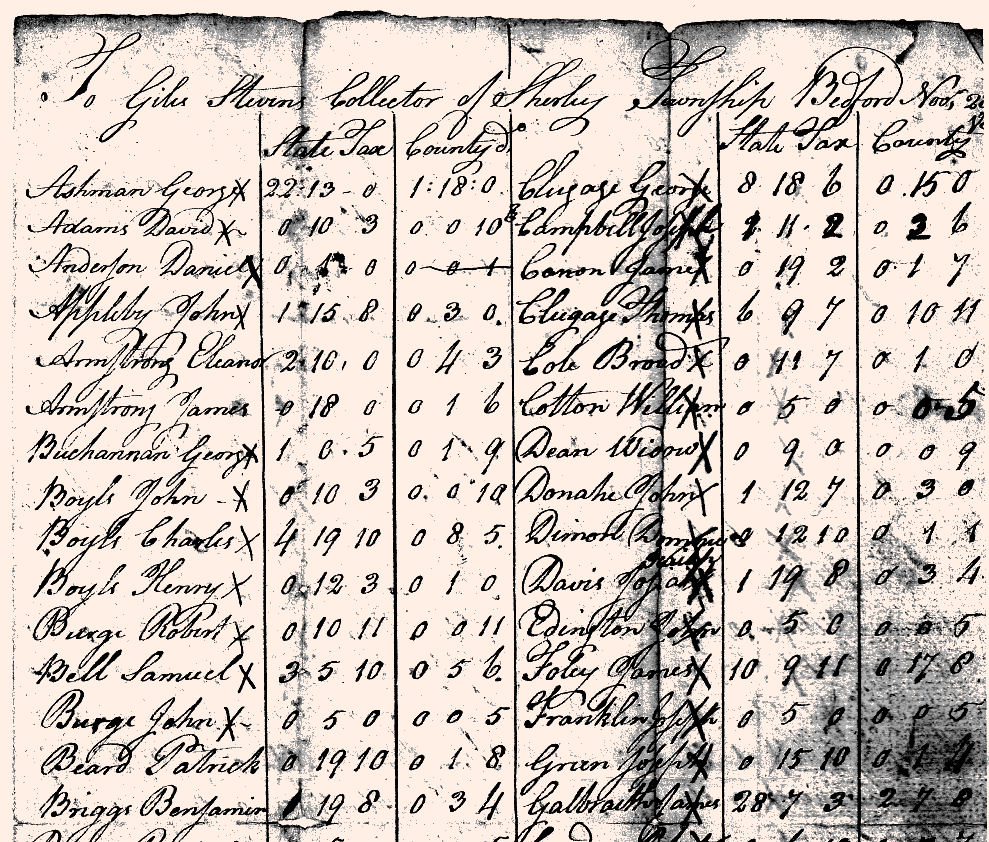 To Giles Stevens Collector of Sherley Township Bedford Nov
State Tax County do State Tax County
Ashman George X 22:13-0 1:18:0. Clugage George X 8 18 6 0 15 0
Adams David X 0 10 3 0 0 10 Campbell Joseph 11 2 0 2 6
Anderson Daniel X 0 0 0 0 1 Canon James X 0 19 2 0 1 7
Appleby John X 1 15 8 0 3 0. Clugage Thomas 6 9 7 0 10 11
Armstrong Eleanor 2 10 0 0 4 3 Cole Broad X 0 11 7 0 1 0
Armstrong James 0 18 0 0 1 6 Cotton William 0 5 0 0 0 5
Buchannan George X 1 0 5 0 1 9 Dean X 0 9 0 0 0 9
Boyls John - X 0 10 3 0 0 10 Donahe John X 1 12 7 0 3 0
Boyls Charles X 4 19 10 0 8 5. Dimond 12 10 0 1 1
Boyls Henry X 0 12 3 0 1 0 Davis 1 19 8 0 3 4
Burge Robert X 0 10 11 0 0 11 Edington John 0 5 0 0 0 5
Bell Samuel X 3 5 10 0 5 6. Foley James X 10 9 11 0 17 8
Burge John X 0 5 0 0 0 5 Franklin Joseph 0 5 0 0 0 5
Beard Patrick 0 19 10 0 1 8 Green Joseph X 0 15 10 0 1 4
Briggs Benjamin 1 19 8 0 3 4 Galbraith James 28 7 3 2 7